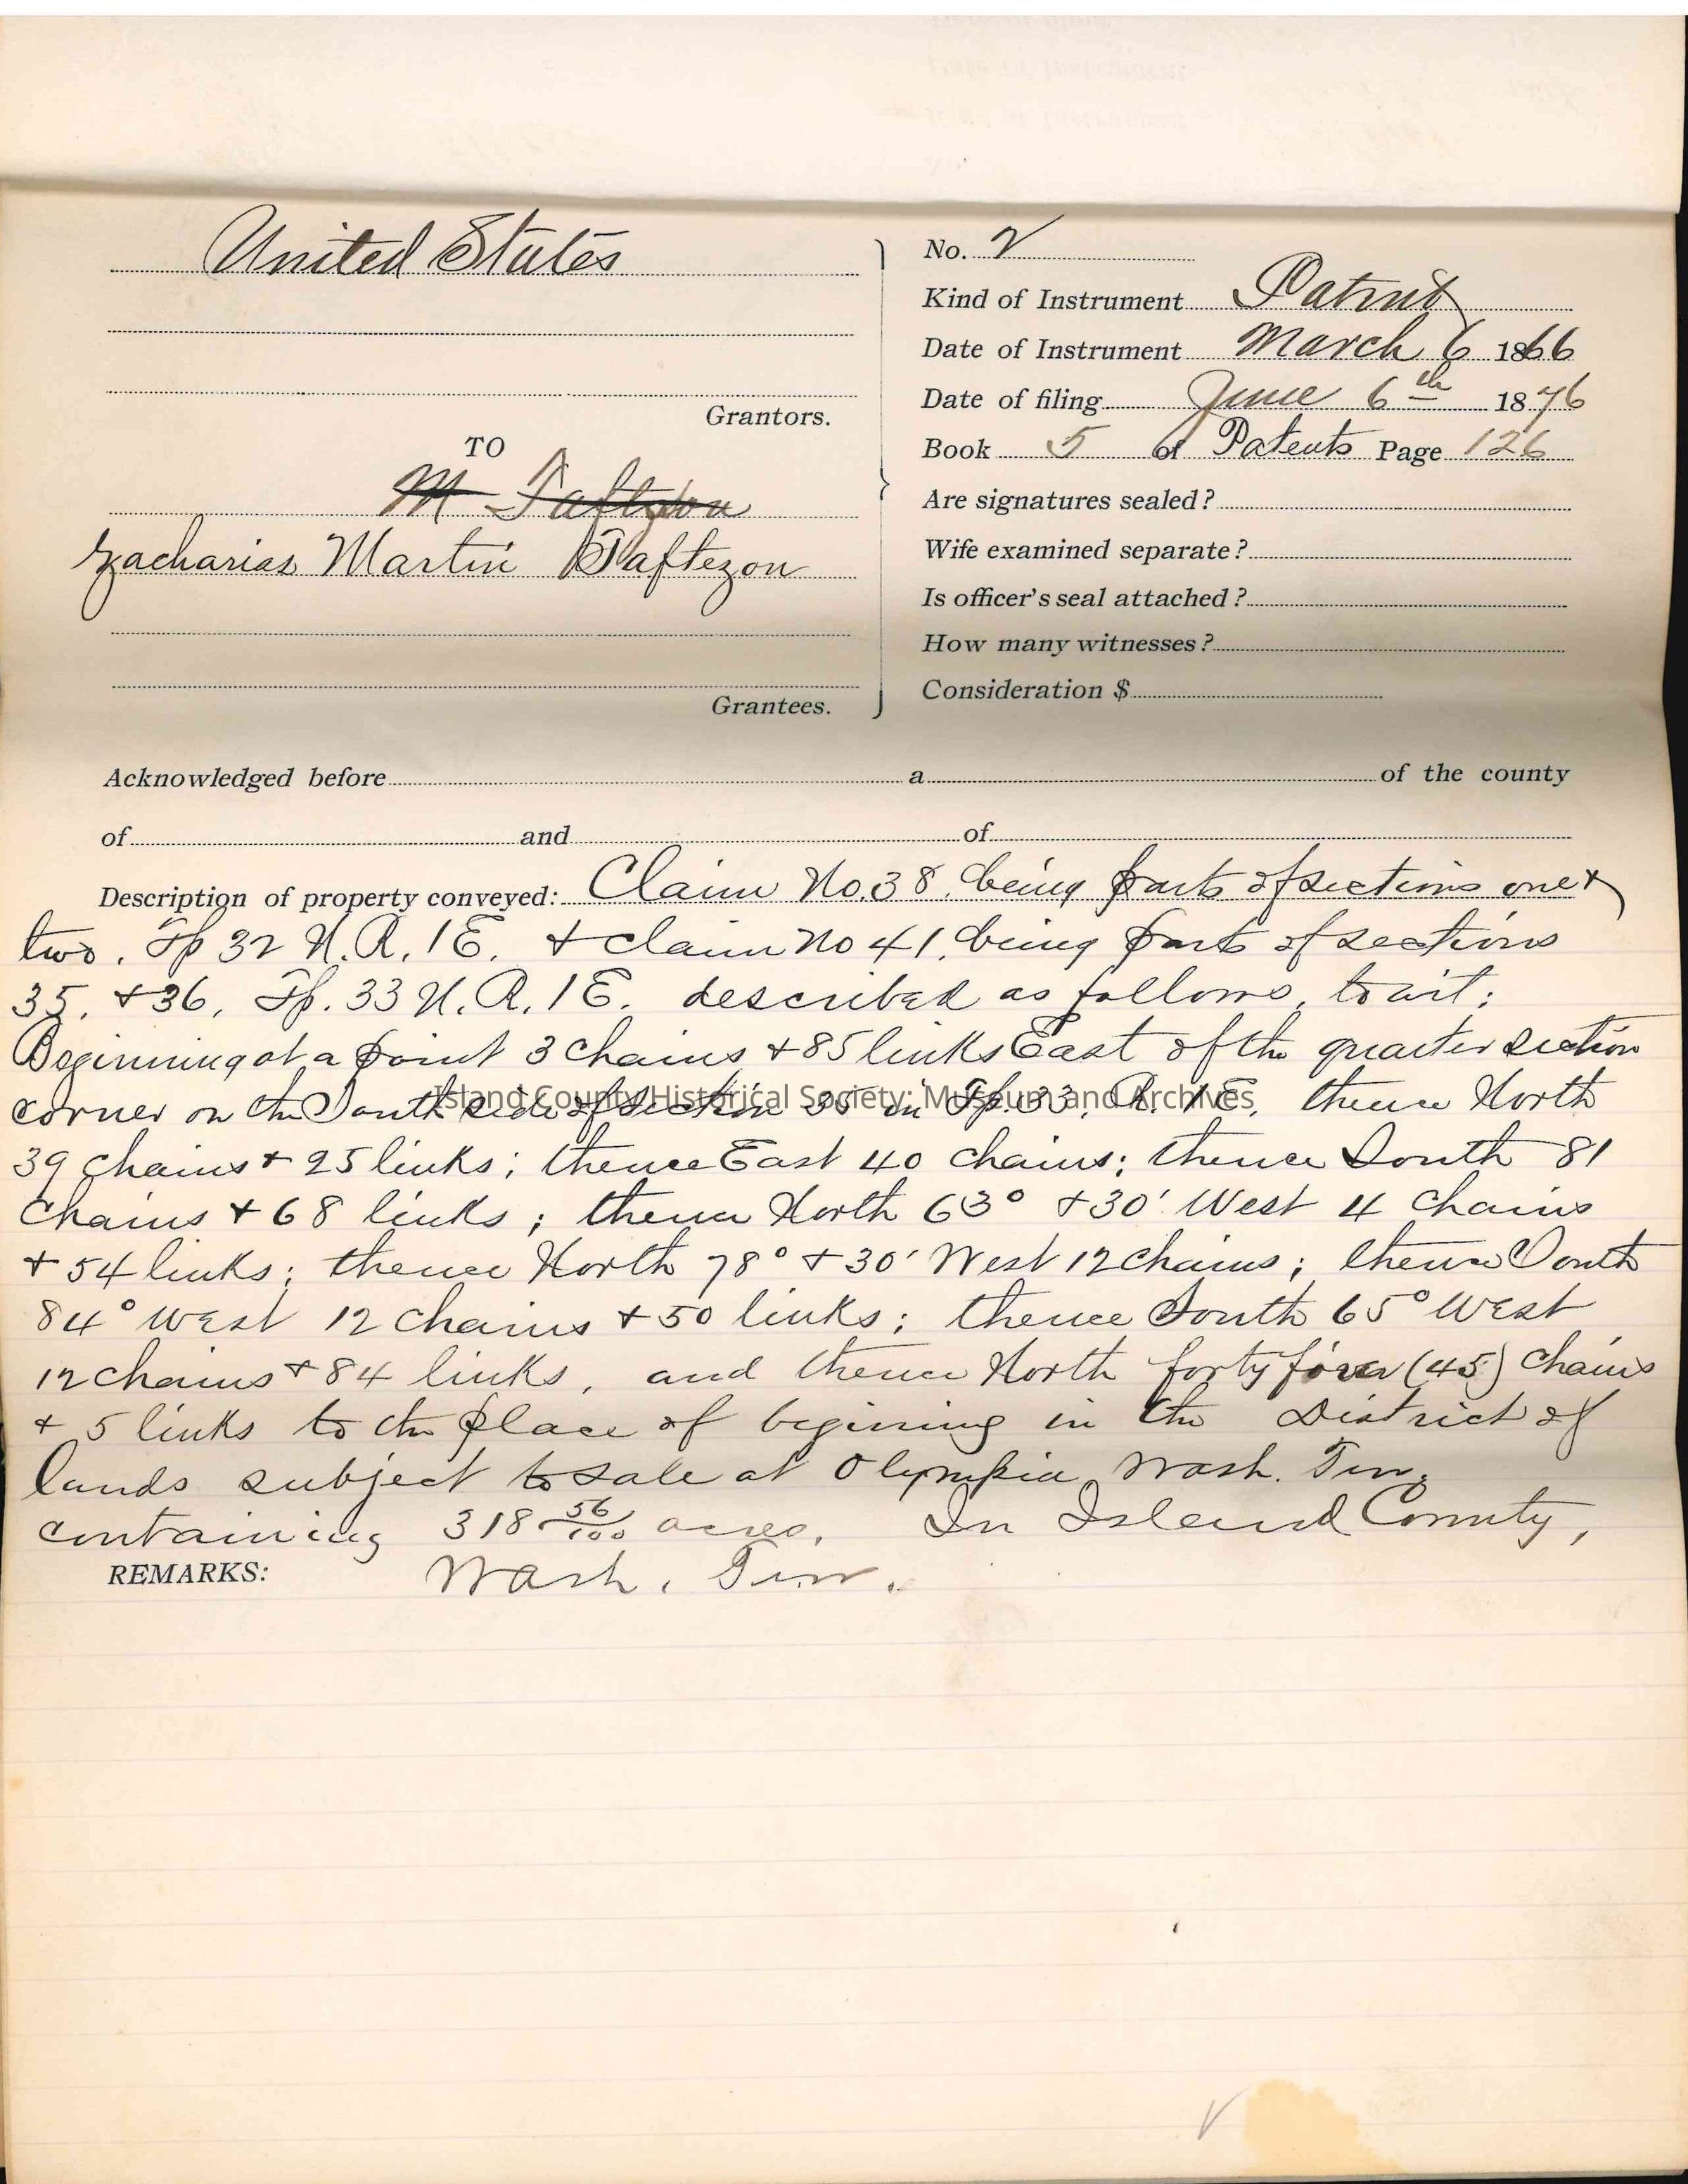 United States
No. 2
Kind of Instrument Patent
Date of Instrument March 6 1866
Date of filing June 6th 1876
Grantors.
Book 5 of Patents Page 126
TO
M Taftezon
Are signatures sealed?
Zacharias Martin Taftezon
Wife examined separate?
Is officer's seal attached?
How many witnesses?
Consideration $
Grantees.
Acknowledged before a of the county
of and of
Description of property conveyed: Claim No. 38, being parts of sections one &
two, Tp 32 N. R. 1 E. & claim no 41, being parts of sections
35, & 36, Tp. 33 N. R. 1 E. described as follows, to wit:
Beginning at a point 3 chains & 85 links East of the quarter section
corner on the South side of section 35 in Tp. 33, R. 1 E, thence North
Island County Historical Society: Museum and Archives
39 chains & 25 links; thence East 40 chains; thence South 81
chains & 68 links; thence North 63° & 30' West 4 chains
& 54 links; thence North 78° & 30' West 12 chains; thence South
84° West 12 chains & 50 links; thence South 65° West
12 chains & 84 links, and thence North forty (45) chains
& 5 links to the place of begining in the District of
lands subject to sale at Olympia, Wash. Terr.
containing 318 56/100 acres. In Island County,
REMARKS: Wash. Terr.